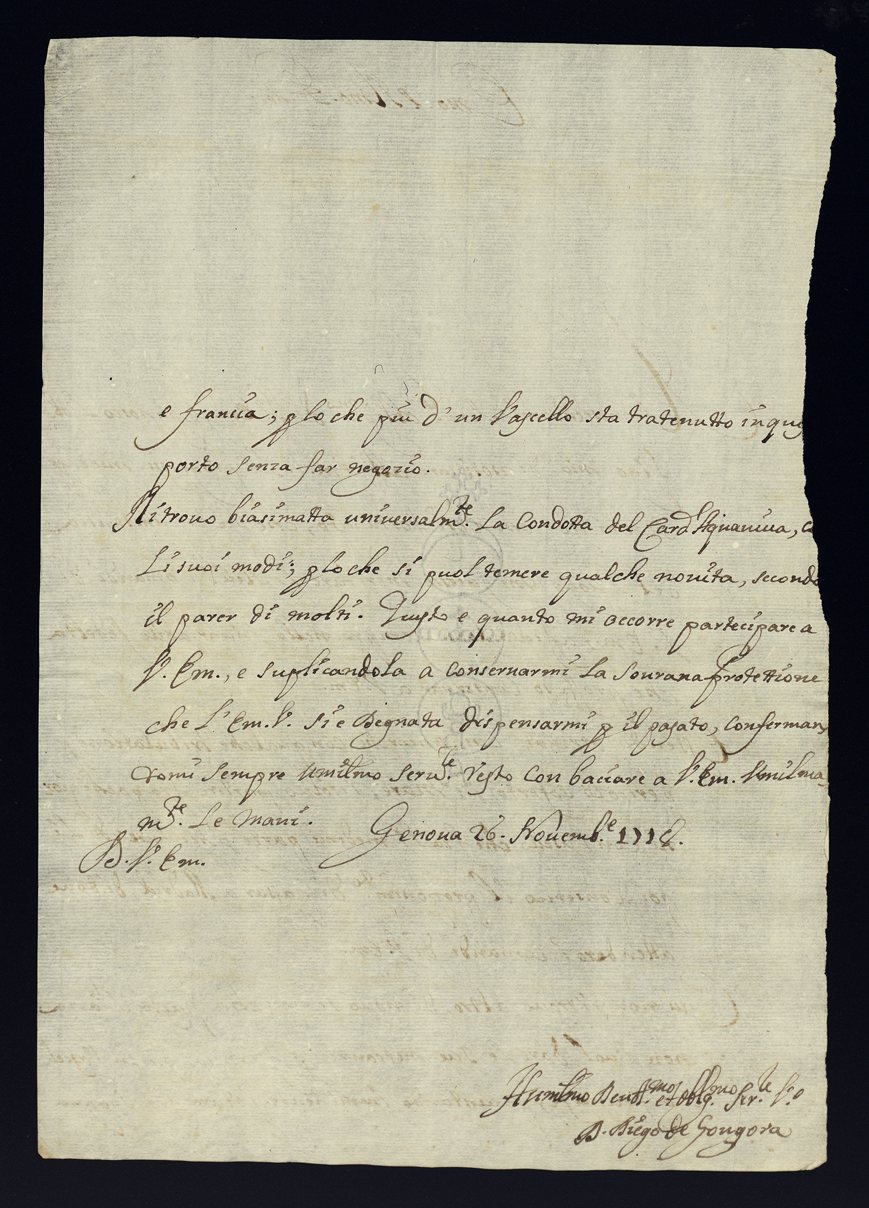 e francia; p lo che più d'un Vascello sta tratenutto in que
porto senza far negozio.
Ritrovo biasimatta universalmte. La Condotta del Cardl Aquaviva, 
Li suoi modi; p lo che si puol temere qualche novita, secondo
il parer di molti. Questo e quanto mi occorre partecipare a
V. Em., e suplicandola a conservarmi La Sovrana protettione
che L'Em. V. si e Degnata dispensarmi p il pasato, conferman
domi sempre Umilmo servte. resto con baciare a V. Em. Vmilma
mte. Le Mani. Genova 26. Novembe. 1718.
D. V. Em.
Humilmo Devotmo. et oblgmo. Serte. Vo
D. Diego de Gongora